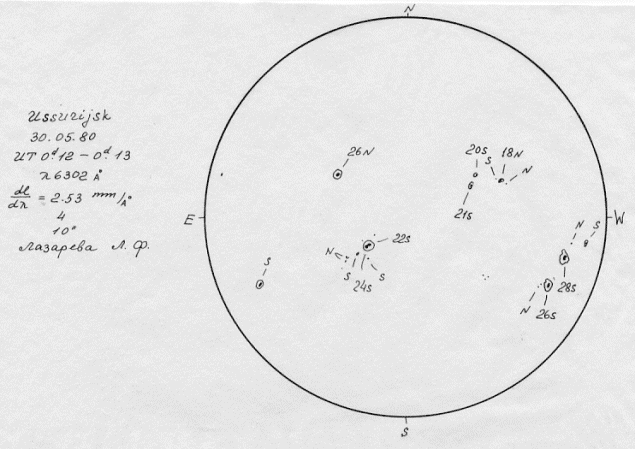 N
Ussurijsk
30.05.80
UT 0ᵈ12 – 0ᵈ13
λ 6302 Å
dl/dλ = 2.53 mm/Å
4
10"
Лазарева Л. Ф.
26N
20s
18N
S
N
21s
E
W
22s
N
S
24s
S
S
N
S
28s
N
26s
S